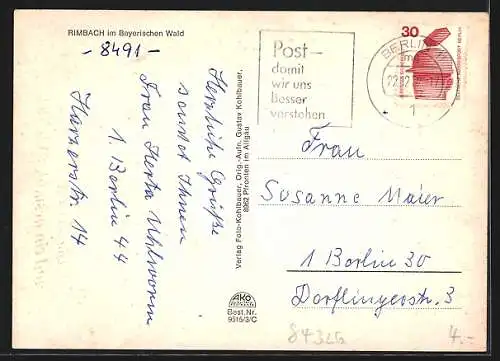 RIMBACH im Bayerischen Wald
- 8491 -
Herzliche Grüße
sendet Ihnen
Frau Herta Uhlworm
1. Berlin 44
Harzerstr. 14
Verlag Foto-Kohlbauer, Orig.-Aufn. Gustav Kohlbauer,
8962 Pfronten im Allgäu
AKO
Best. Nr.
9515/3/C
Post –
damit
wir uns
besser
verstehen
BERLIN
1
30
DEUTSCHE BUNDESPOST BERLIN
Frau
Susanne Maier
1 Berlin 30
Dorflingerstr. 3
4.-